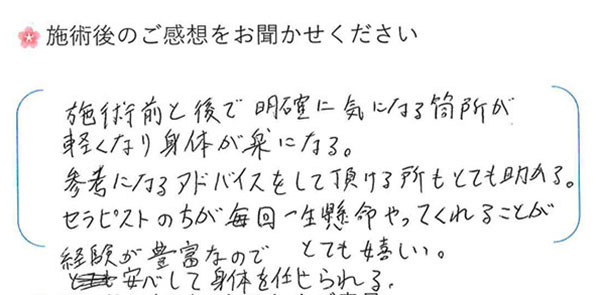 施術後のご感想をお聞かせください
施術前と後で明確に気になる箇所が
軽くなり身体が楽になる。
参考になるアドバイスをして頂ける所もとても助かる。
セラピストの方が毎回一生懸命やってくれることが
とても嬉しい。
経験が豊富なので
安心して身体を任せられる。